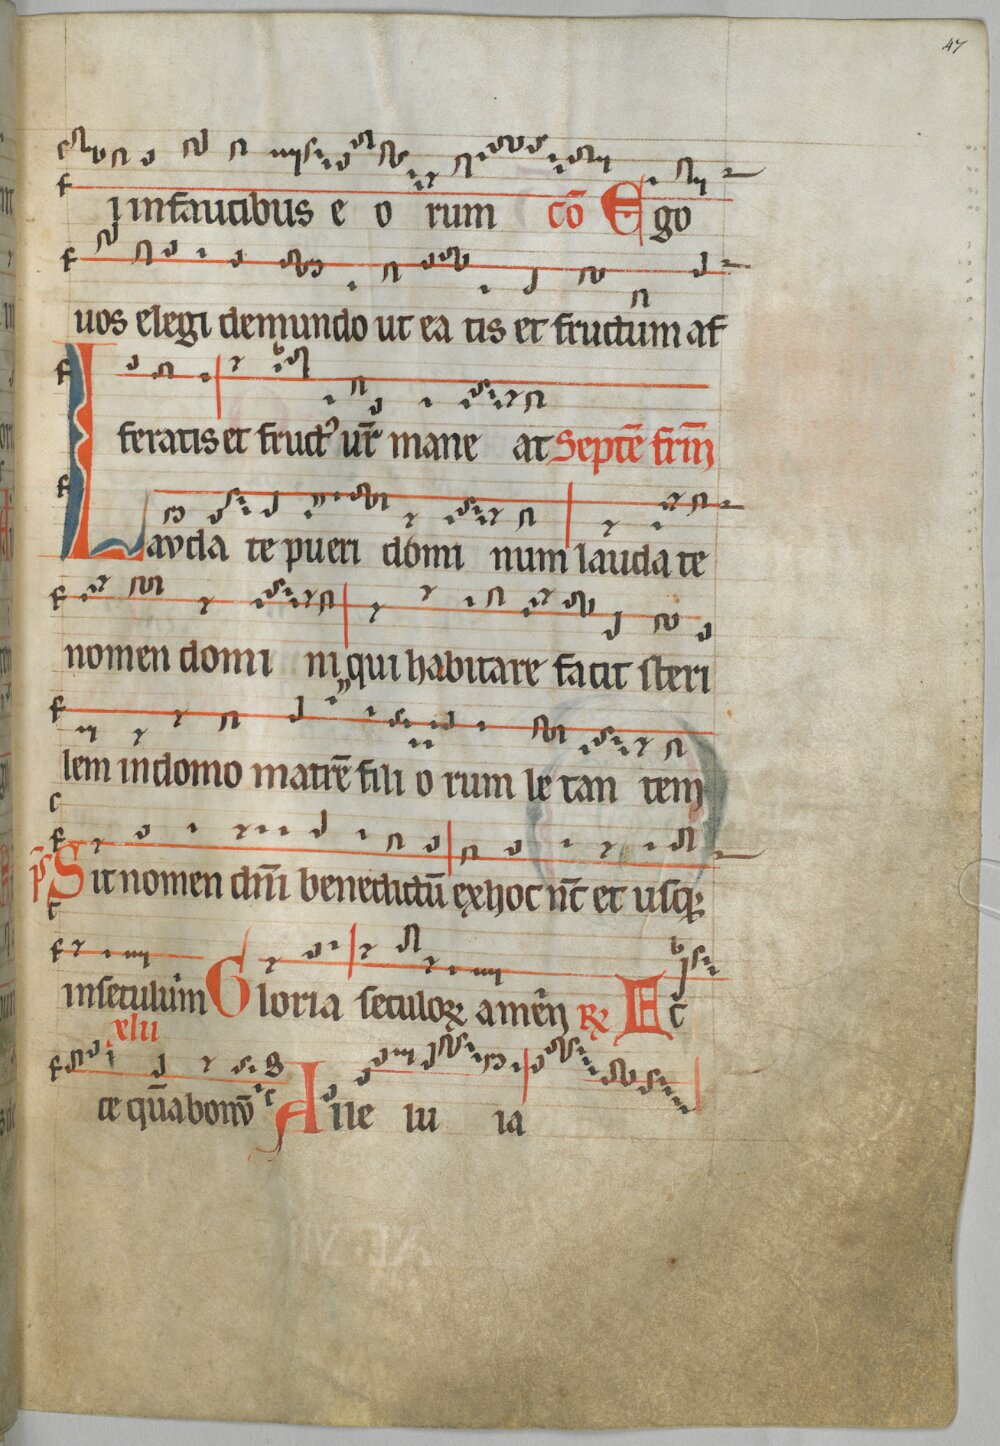 47
j infaucibus e o rum cō Ego
uos elegi demundo ut ea tis et fructum af
feratis et fruct' ur̄ mane at Septē frm̄
Lavda te pueri domi num lauda te
nomen domi ni qui habitare facit steri
lem in domo matrē fili o rum le tan tem
ps Sit nomen dn̄i benedictū ex hoc nc̄ et usqꝫ
inseculum Gloria seculoꝝ amen ℟ Ec
xlii
ce qua bonū Alle lu ia